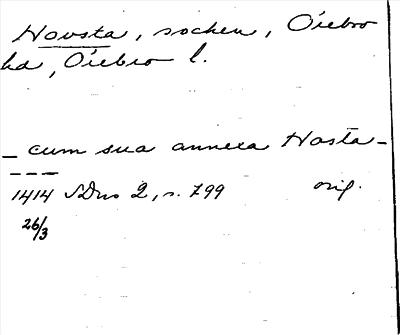 Hovsta, socken, Örebro
hd, Örebro l.
_ cum sua annexa Hostā _
_ _ _
1414 SDns 2, s. 799 orig.
26/3